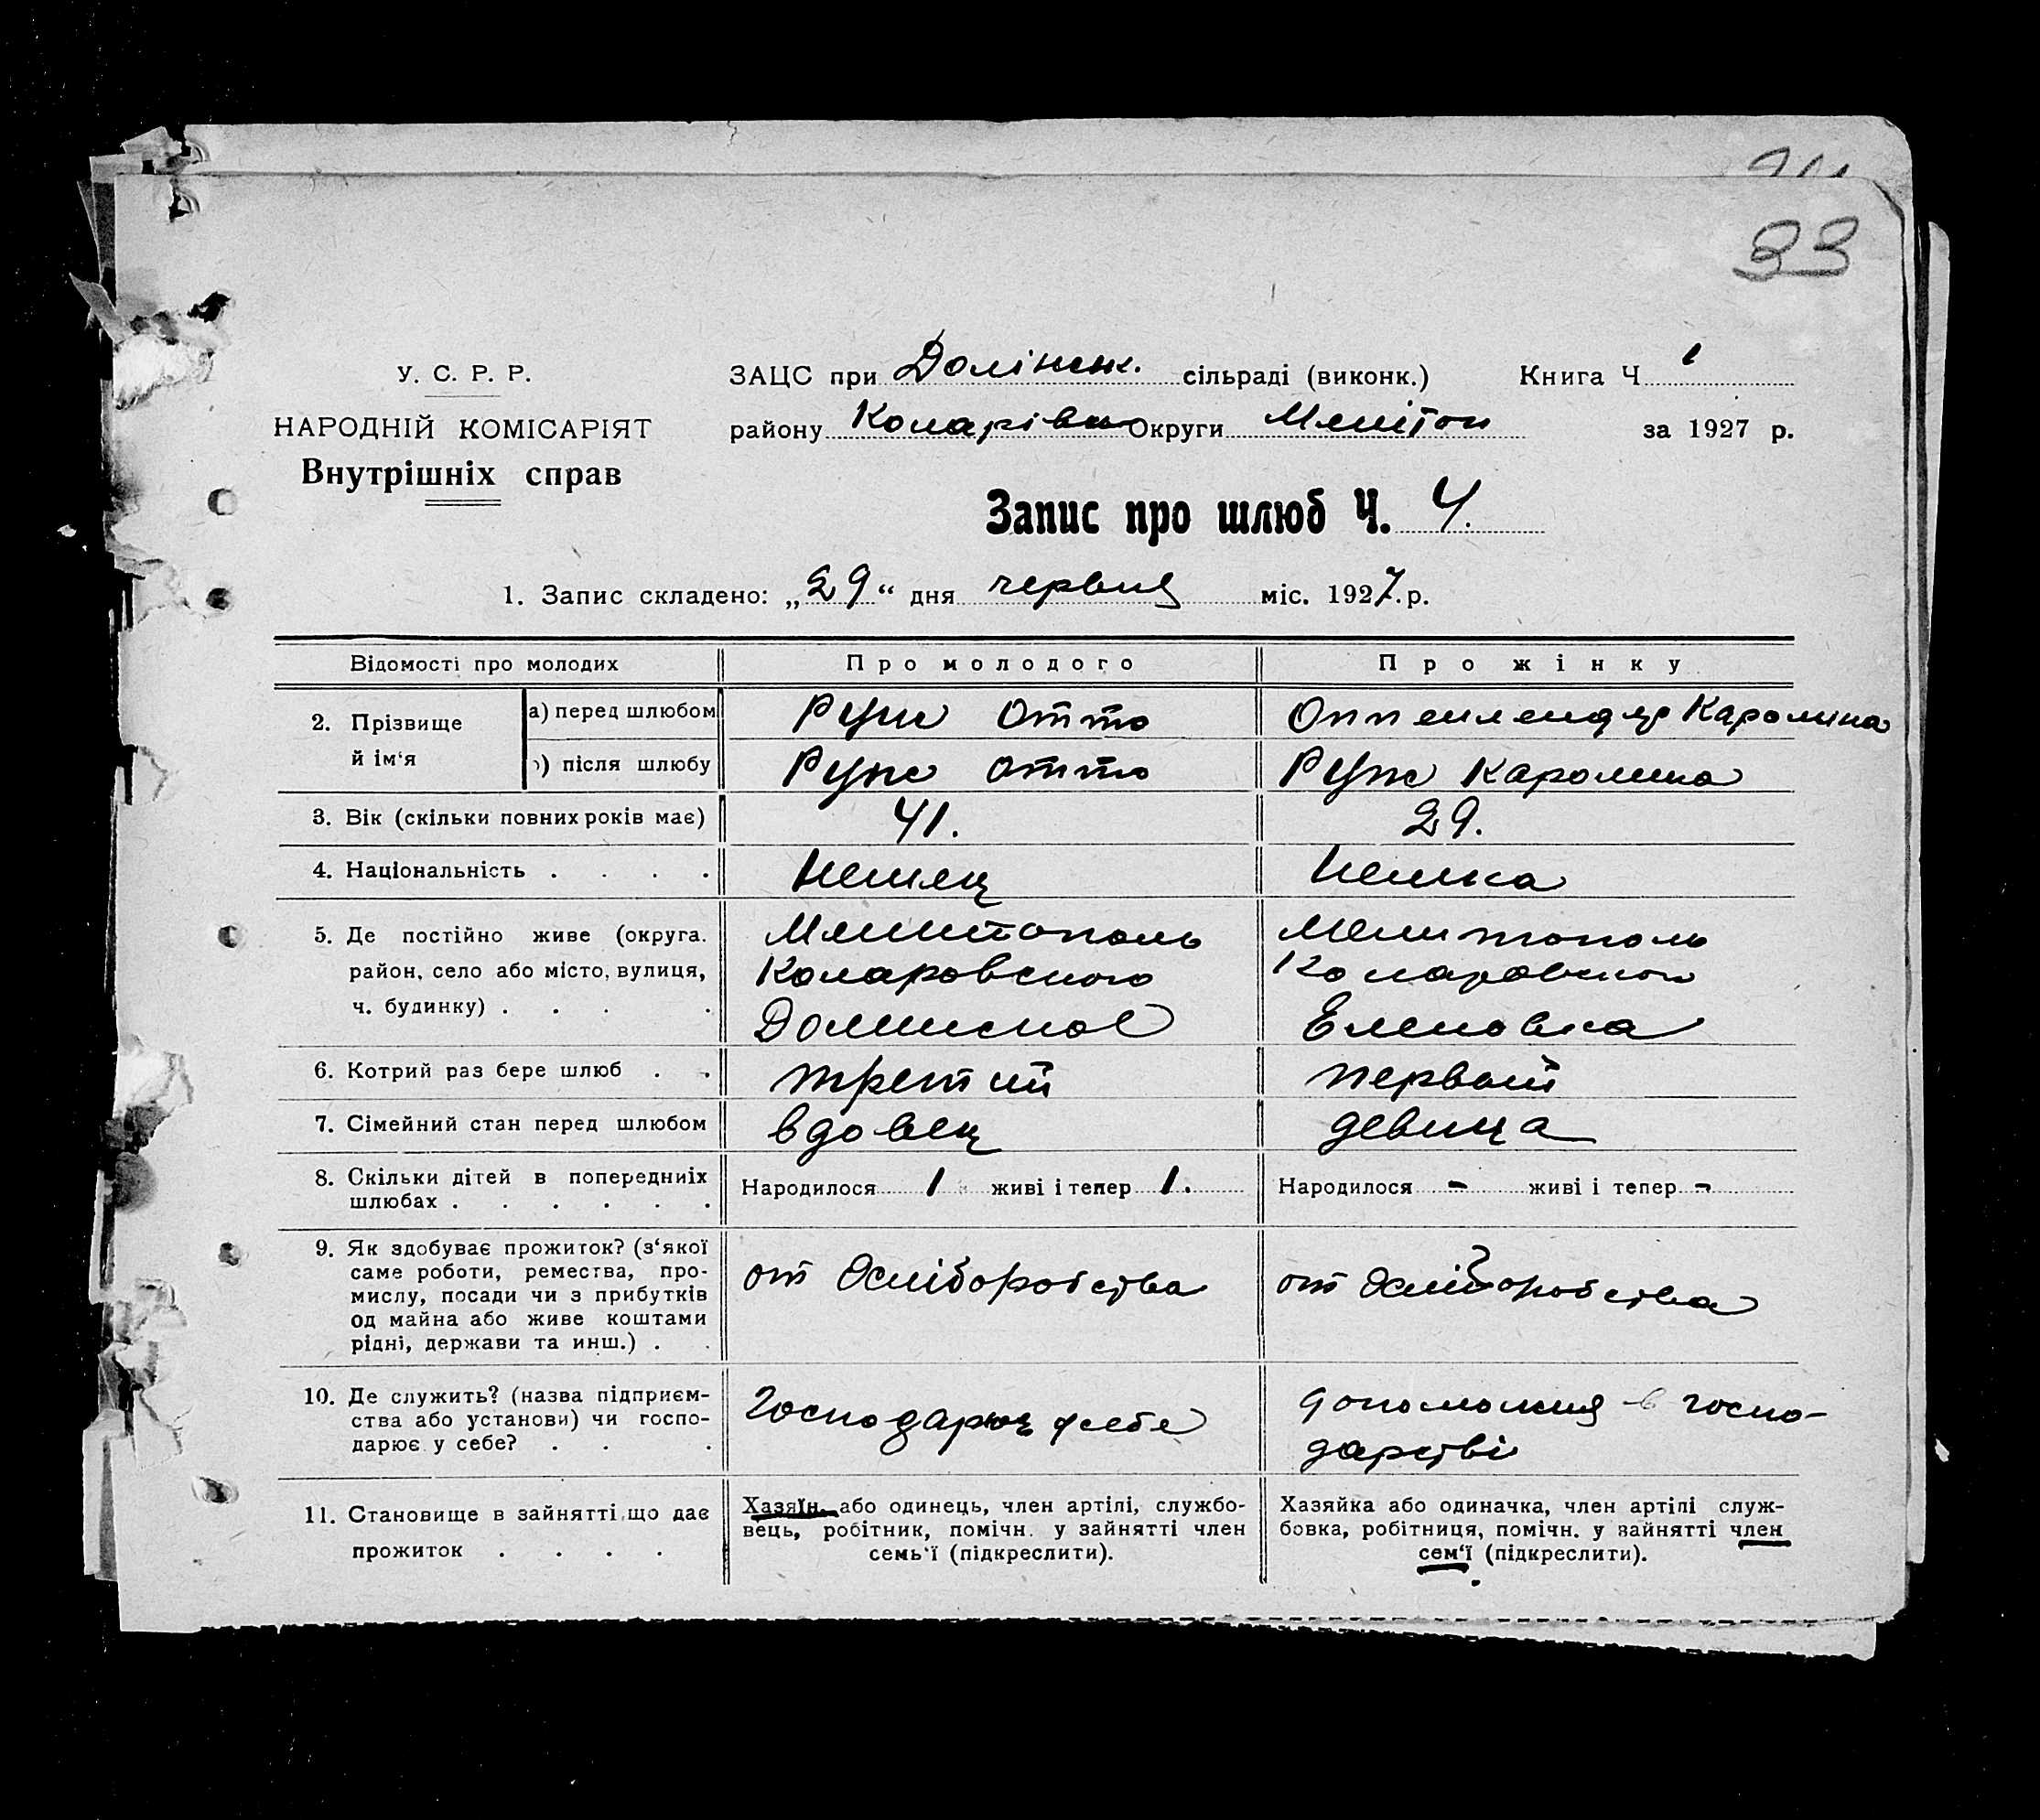 33
У. С. Р. Р.
НАРОДНІЙ КОМІСАРІЯТ
Внутрішніх справ
ЗАЦС при Долінськ. сільраді (виконк.) Книга Ч 1
району Коларівск Округи Меліток за 1927 р.
Запис про шлюб Ч. 4.
1. Запис складено: „29“ дня червня міс. 1927. р.
Відомості про молодих Про молодого Про жінку
2. Прізвище й ім‘я
а) перед шлюбом Отто Каролина
) після шлюбу Отто Каролина
3. Вік (скільки повних років має) 41. 29.
4. Національність . . . . Немец Немка
5. Де постійно живе (округа. Мелитополь Мелитополь
район, село або місто, вулиця, Коларовского Коларовского
ч. будинку) . . . . Долинское Еленовка
6. Котрий раз бере шлюб . . третий первый
7. Сімейний стан перед шлюбом вдовец девица
8. Скільки дітей в попередниіх
шлюбах . . . . . . Народилося 1 живі і тепер 1. Народилося - живі і тепер -
9. Як здобуває прожиток? (з‘якої
саме роботи, ремества, про-
мислу, посади чи з прибутків
од майна або живе коштами
рідні, держави та инш.) . . от хліборобства от хліборобства
10. Де служить? (назва підприєм-
ства або установи) чи госпо-
дарює у себе? . . . господарює у себе допоможця в госпо-
дарстві
11. Становище в зайнятті що дає
прожиток . . . .
Хазяїн або одинець, член артілі, службо-
вець, робітник, помічн. у зайнятті член
семь‘ї (підкреслити).
Хазяйка або одиначка, член артілі служ-
бовка, робітниця, помічн. у зайнятті член
сем‘ї (підкреслити).